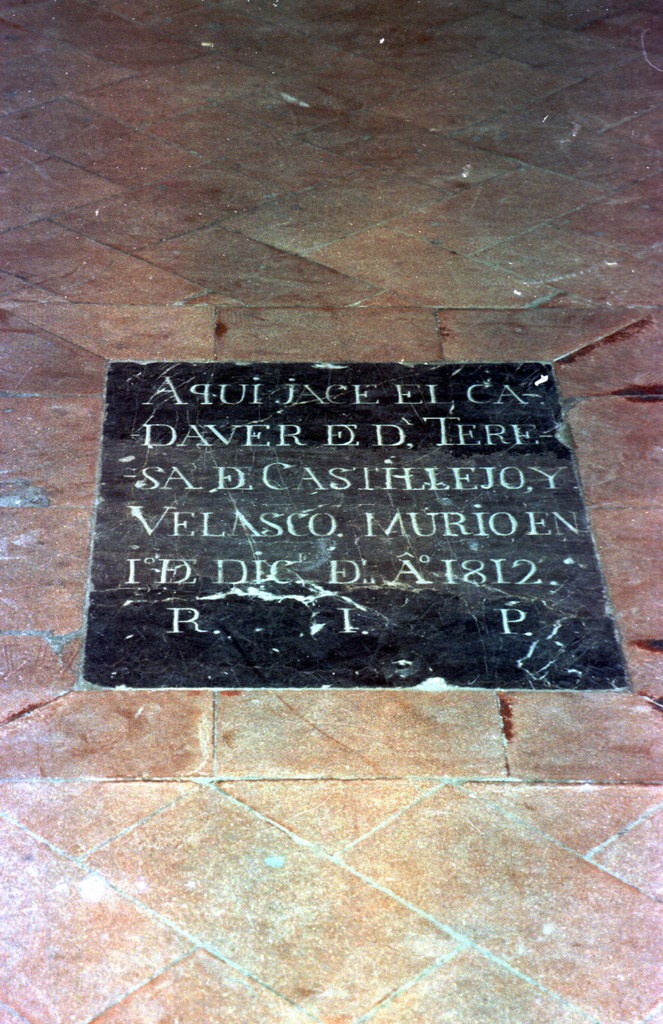 AQUI JACE EL CA-
-DAVER DE D. TERE-
-SA DE CASTILLEJO, Y
VELASCO. MURIO EN
1º DE DIC.ᴱ DEL Âº 1812.
R. I. P.